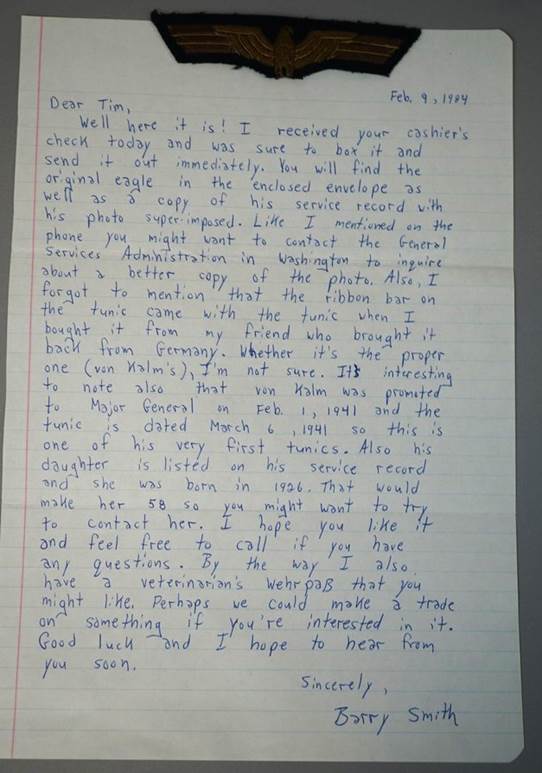 Feb. 9, 1984
Dear Tim,
Well here it is! I received your cashier's
check today and was sure to box it and
send it out immediately. You will find the
original eagle in the enclosed envelope as
well as a copy of his service record with
his photo super-imposed. Like I mentioned on the
phone you might want to contact the General
Services Administration in Washington to inquire
about a better copy of the photo. Also, I
forgot to mention that the ribbon bar on
the tunic came with the tunic when I
bought it from my friend who brought it
back from Germany. Whether it's the proper
one (von Kalm's), I'm not sure. It's interesting
to note also that von Kalm was promoted
to Major General on Feb. 1, 1941 and the
tunic is dated March 6, 1941 so this is
one of his very first tunics. Also his
daughter is listed on his service record
and she was born in 1926. That would
make her 58 so you might want to try
to contact her. I hope you like it
and feel free to call if you have
any questions. By the way I also
have a veterinarian's Wehrpaß that you
might like. Perhaps we could make a trade
on something if you're interested in it.
Good luck and I hope to hear from
you soon.
Sincerely,
Barry Smith